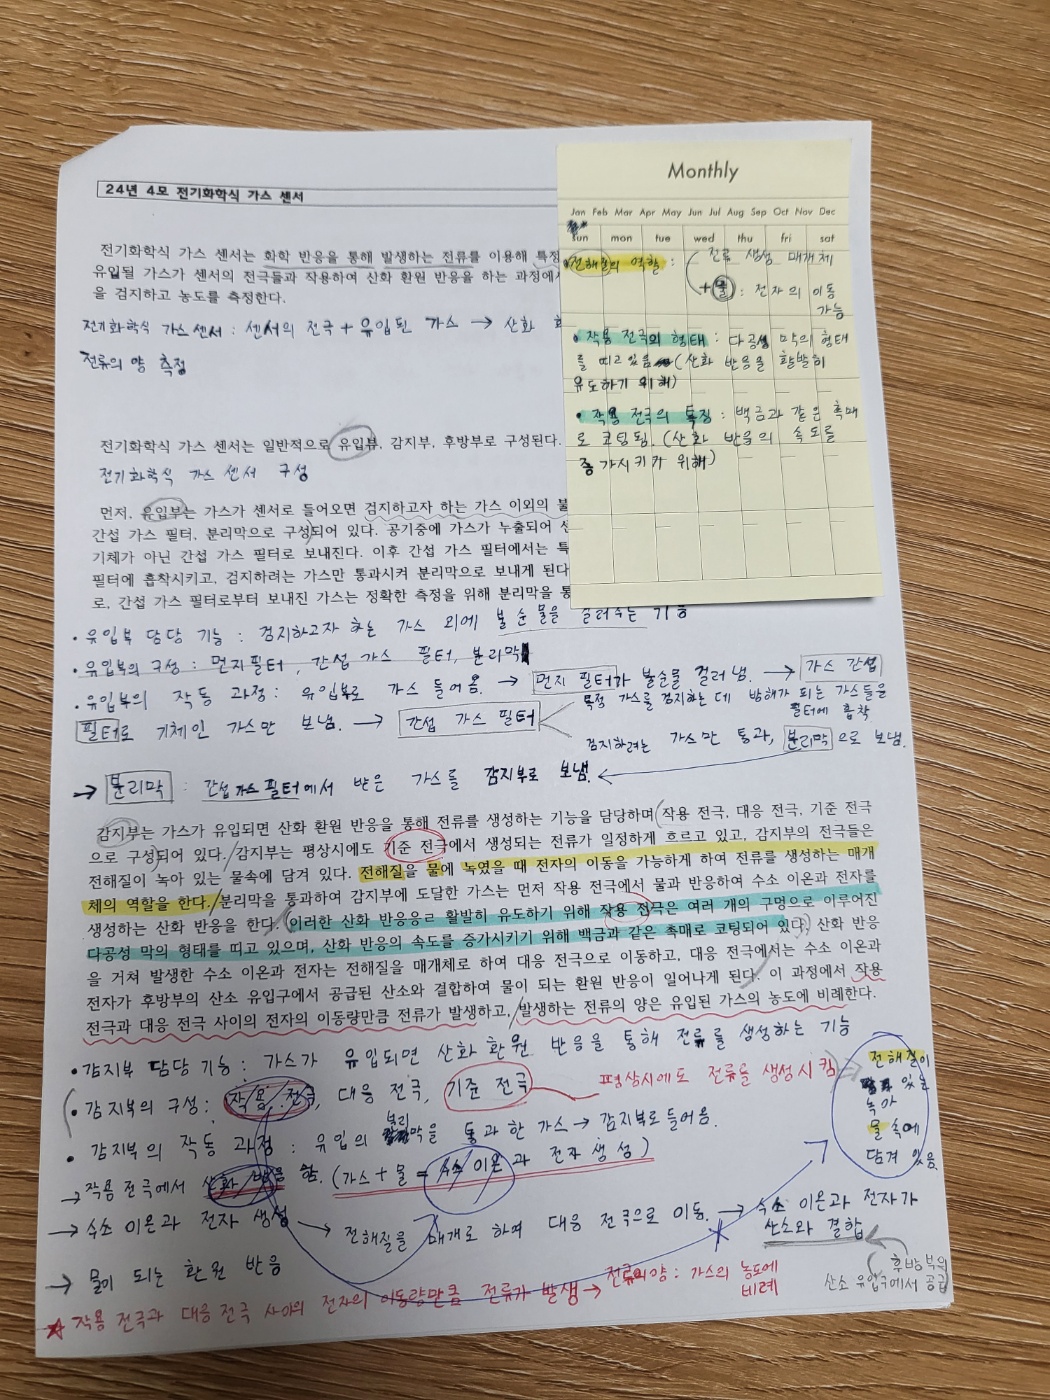 24년 4모 전기화학식 가스 센서
전기화학식 가스 센서는 화학 반응을 통해 발생하는 전류를 이용해 특정
유입될 가스가 센서의 전극들과 작용하여 산화 환원 반응을 하는 과정에서
을 검지하고 농도를 측정한다.
전기화학식 가스센서 : 센서의 전극 + 유입된 가스 → 산화
전류의 양 측정
전기화학식 가스 센서는 일반적으로 유입부, 감지부, 후방부로 구성된다.
전기화학식 가스 센서 구성
먼저, 유입부는 가스가 센서로 들어오면 검지하고자 하는 가스 이외의 불
간섭 가스 필터, 분리막으로 구성되어 있다. 공기중에 가스가 누출되어 센
기체가 아닌 간섭 가스 필터로 보내진다. 이후 간섭 가스 필터에서는 특
필터에 흡착시키고, 검지하려는 가스만 통과시켜 분리막으로 보내게 된다
로, 간섭 가스 필터로부터 보내진 가스는 정확한 측정을 위해 분리막을 통
Monthly
Jan Feb Mar Apr May Jun Jul Aug Sep Oct Nov Dec
sun mon tue wed thu fri sat
전해질의 역할 : 전류 생성 매개체
+ 물 : 전자의 이동
가능
• 작용 전극의 형태 : 다공성 막의 형태
를 띠고 있음 (산화 반응을 활발히
유도하기 위해)
• 작용 전극의 특징 : 백금과 같은 촉매
로 코팅됨. (산화 반응의 속도를
증가시키기 위해)
• 유입부 담당 기능 : 검지하고자 하는 가스 외에 불순물을 걸러주는 기능
• 유입부의 구성 : 먼지필터, 간섭 가스 필터, 분리막
• 유입부의 작동 과정 : 유입부로 가스 들어옴. → 먼지 필터가 불순물 걸러냄. → 가스 간섭
필터로 기체인 가스만 보냄. → 간섭 가스 필터
특정 가스를 검지하는 데 방해가 되는 가스들을
필터에 흡착
검지하려는 가스만 통과, 분리막으로 보냄.
→ 분리막 : 간섭가스필터에서 받은 가스를 감지부로 보냄.
감지부는 가스가 유입되면 산화 환원 반응을 통해 전류를 생성하는 기능을 담당하며 작용 전극, 대응 전극, 기준 전극
으로 구성되어 있다. 감지부는 평상시에도 기준 전극에서 생성되는 전류가 일정하게 흐르고 있고, 감지부의 전극들은
전해질이 녹아 있는 물속에 담겨 있다. 전해질은 물에 녹였을 때 전자의 이동을 가능하게 하여 전류를 생성하는 매개
체의 역할을 한다. 분리막을 통과하여 감지부에 도달한 가스는 먼저 작용 전극에서 물과 반응하여 수소 이온과 전자를
생성하는 산화 반응을 한다. 이러한 산화 반응응ㄹ 활발히 유도하기 위해 작용 전극은 여러 개의 구멍으로 이루어진
다공성 막의 형태를 띠고 있으며, 산화 반응의 속도를 증가시키기 위해 백금과 같은 촉매로 코팅되어 있다. 산화 반응
을 거쳐 발생한 수소 이온과 전자는 전해질을 매개체로 하여 대응 전극으로 이동하고, 대응 전극에서는 수소 이온과
전자가 후방부의 산소 유입구에서 공급된 산소와 결합하여 물이 되는 환원 반응이 일어나게 된다. 이 과정에서 작용
전극과 대응 전극 사이의 전자의 이동량만큼 전류가 발생하고, 발생하는 전류의 양은 유입된 가스의 농도에 비례한다.
• 감지부 담당 기능 : 가스가 유입되면 산화 환원 반응을 통해 전류를 생성하는 기능
• 감지부의 구성 : 작용 전극, 대응 전극, 기준 전극
평상시에도 전류를 생성시킴
전해질이
있는
녹아
물 속에
담겨 있음.
• 감지부의 작동 과정 : 유입의 분리막을 통과한 가스 → 감지부로 들어옴.
→ 작용 전극에서 산화 반응 함. (가스 + 물 = 수소 이온과 전자 생성)
→ 수소 이온과 전자 생성 → 전해질을 매개로 하여 대응 전극으로 이동. → 수소 이온과 전자가
산소와 결합
후방부의
산소 유입구에서 공급
→ 물이 되는 환원 반응
★ 작용 전극과 대응 전극 사이의 전자의 이동량만큼 전류가 발생 → 전류의양 : 가스의 농도에
비례